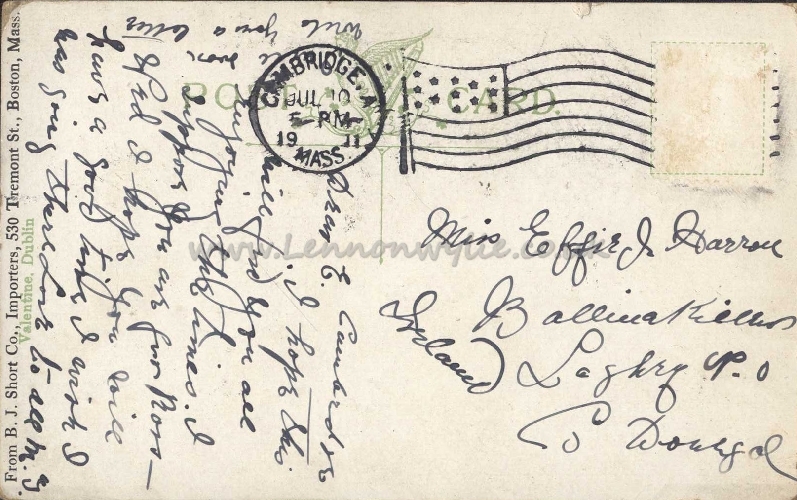 From B. J. Short Co., Importers, 530 Tremont St., Boston, Mass.
Valentine, Dublin
POST CARD.
CAMBRIDGE, A
JUL 10
5-PM
19 11
MASS.
Miss Effie J. Harron
Ballinakillew
Laghey P.O
Co Donegal
Ireland
Dear E. Cambridge
I hope this
will find you all
enjoying the times. I
suppose you are for Ross-
and I hope you will
have a good time I wish I
was going there Love to all M.
write you a letter
soon
www.Lennonwylie.co.uk